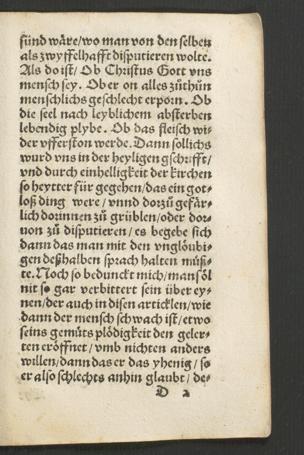 sünd wäre/wo man von den selben
als zwyffelhafft disputieren wolte.
Als do ist/ Ob Christus Gott vnd
mensch sey. Ob er on alles zůthůn
menschlichs geschlecht erporn. Ob
die seel nach leyblichem absterben
lebendig plybe. Ob das fleisch wi-
der vfferston werde. Dann sollichs
wurd vns in der heyligen gschrifft/
vnd durch einhelligkeit der kirchen
so heytter für gegeben/das ein got-
loß ding were/ vnnd dorzů gefär-
lich dorinnen zů grüblen/oder dor-
uon zů disputieren/ es begebe sich
dann das man mit den vnglöubi-
gen deßhalben sprach halten müß-
te. Noch so bedunckt mich/man söl
nit so gar verbittert sein über ey-
nen/der auch in disen articklen/wie
dann der mensch schwach ist/etwo
seins gemüts plödigkeit den geler-
ten eröffnet/ vmb nichten anders
willen/dann das er das yhenig/ so
er also schlechts anhin glaubt/ de-
D 2